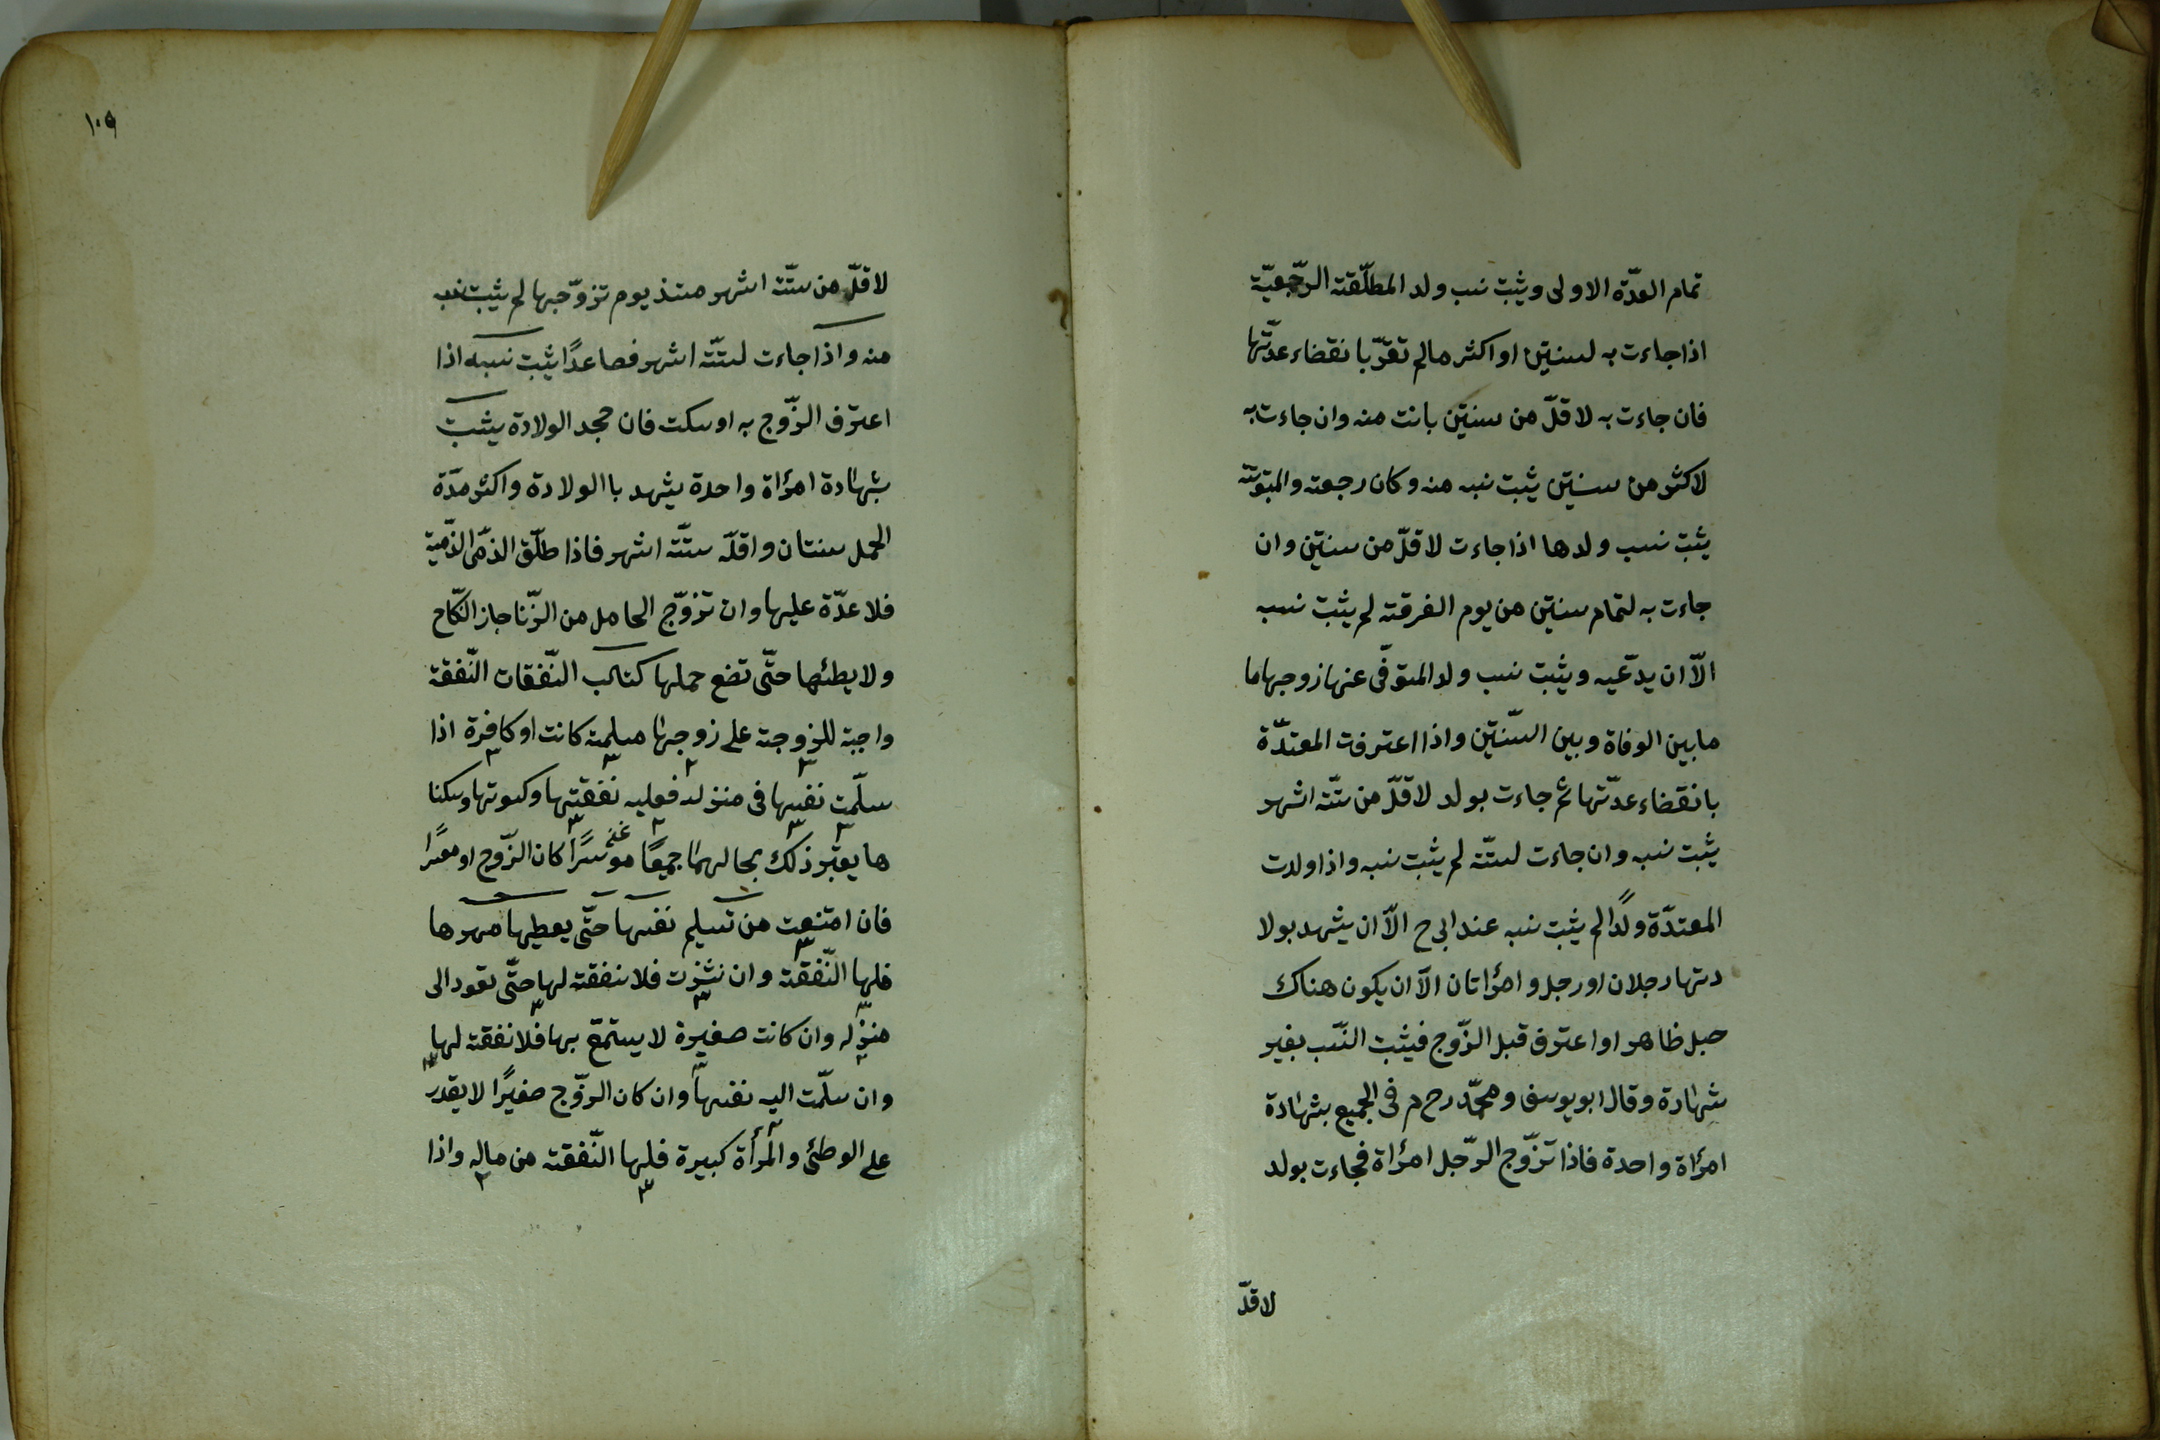 تمام العدّة الاولى ويثبت نسب ولد المطلّقة الرّجعيّة
اذا جاءت به لسنتين او اكثر مالم تقرّ با نقضاء عدّتها
فان جاءت به لاقلّ من سنتين بانت منه وان جاءت به
لاكثر من سنتين يثبت نسبه منه وكان رجعة والمبتوتة
يثبت نسب ولدها اذا جاءت لاقلّ من سنتين وان
جاءت به لتمام سنتين من يوم الفرقة لم يثبت نسب
الّا ان يدّعيه ويثبت نسب ولد المتوفّى عنها زوجها ما
مابين الوفاة وبين السّنتين واذا اعترفت المعتدّة
بانقضاء عدّتها ثم جاءت بولد لاقلّ من ستّة اشهر
يثبت نسبه وان جاءت لستّة لم يثبت نسبه واذا ولدت
المعتدّة ولدًا لم يثبت نسبه عند ابى ح الّا ان يشهد بولا
دتها رجلان او رجل و امرأتان الّا ان يكون هناك
حبل ظاهر او اعترف قبل الزّوج فيثبت النّسب بغير
شهادة وقال ابو يوسف ومحمّد رح م فى الجميع بشهادة
امرأة واحدة فاذا تزّوج الرّجل امرأة فجاءت بولد
لاقلّ
١٠٩
لاقلّ من ستّة اشهر منذ يوم تزوّجها لم يثبت نسبه
منه واذا جاءت لستّة اشهر فصاعدًا يثبت نسبه اذا
اعترف الزّوج به او سكت فان جحد الولادة يثبت
بشهادة امرأة واحدة يشهد باالولادة واكثر مدّة
الحمل سنتان واقلّه ستّة اشهر فاذا طلّق الذمّى الذّمية
فلا عدّة عليها وان تزوّج الحامل من الزّنا جاز النّكاح
ولا يطئها حتّى تضع حملها كتاب النّفقات النّفقة
واجبة للزوجة على زوجها مسلمة كانت او كافرة اذا
سلّمت نفسها فى منزله فعليه نفقتها وكسوتها وسكنا
ها يعتبر ذلك بحالهما جميعًا موسرًا كان الزّوج او معسرا
غنى
فان امتنعت من تسليم نفسها حتّى يعطيها مهرها
فلها النّفقة وان نشزت فلا نفقة لها حتّى تعود الى
منزله وان كانت صغيرة لا يستمتع بها فلا نفقة لها
وان سلّمت اليه نفسها وان كان الزوّج صغيرًا لا يقدر
على الوطئ والمرأة كبيرة فلها النّفقة من ماله واذا